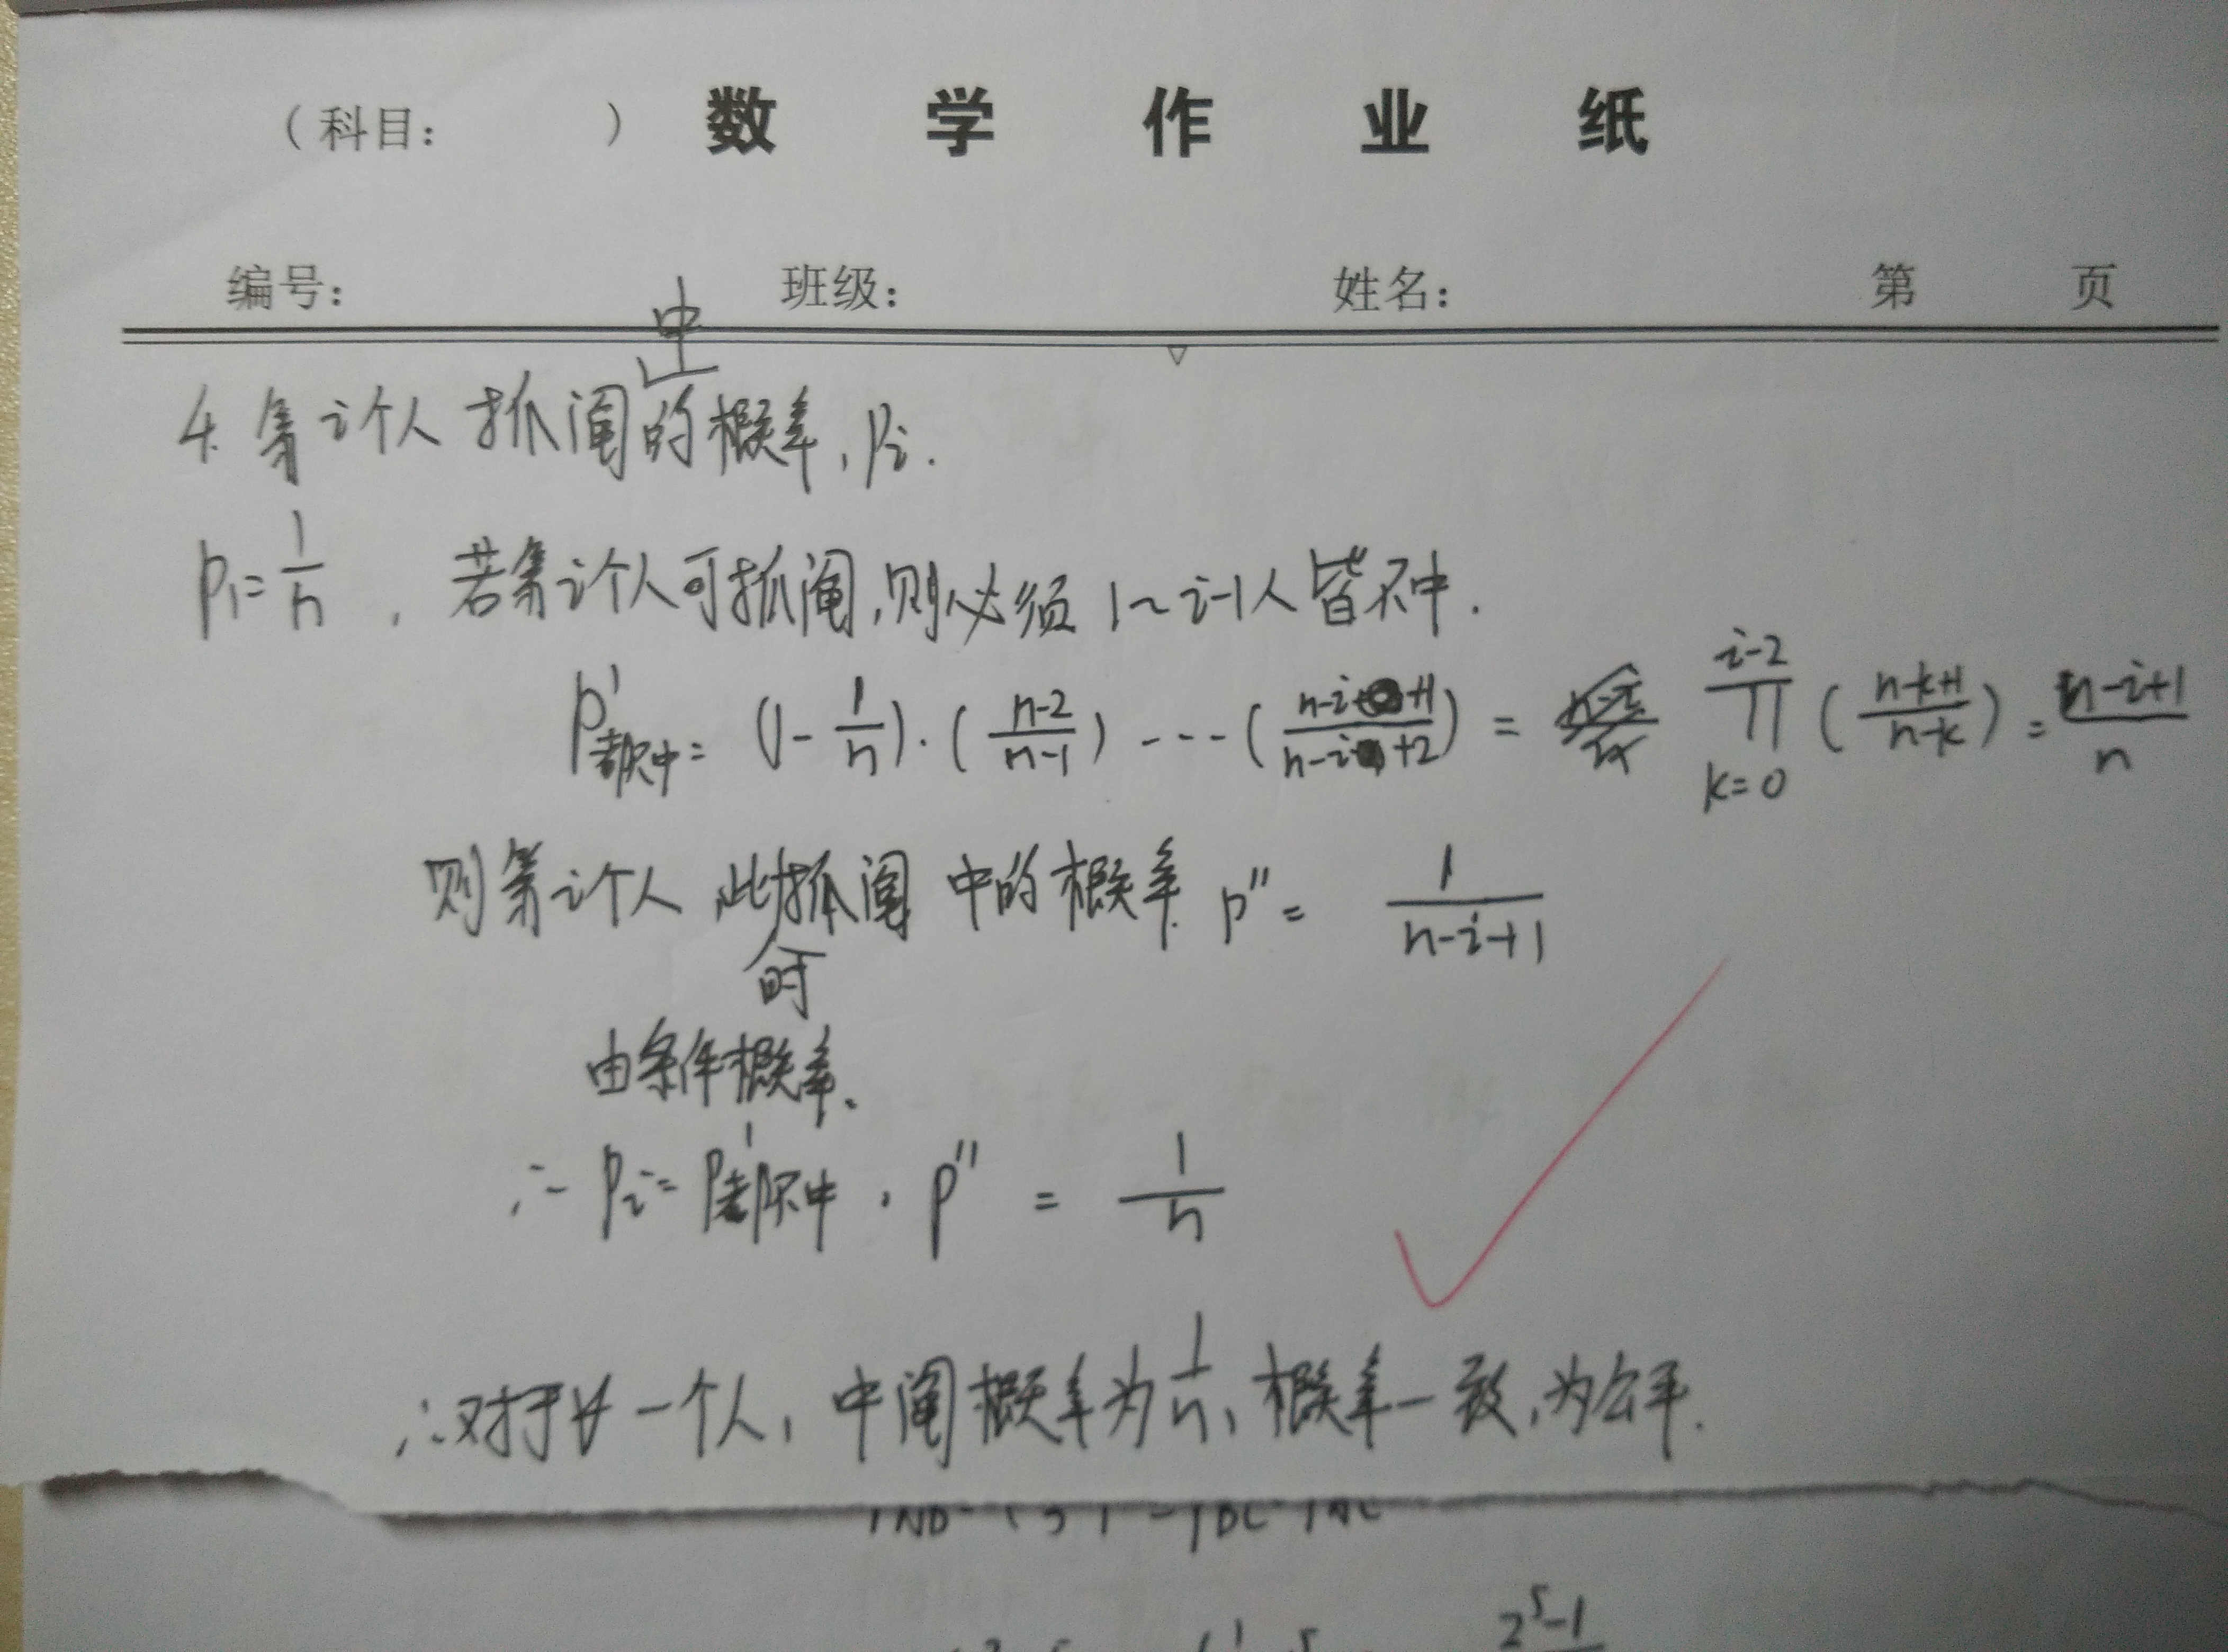 （科目： ） 数 学 作 业 纸
编号： 班级： 姓名： 第 页
4. 第i个人抓阄中的概率, Pi.
P1=1/n , 若第i个人可抓阄,则必须 1~i-1人皆不中.
P'都不中= (1-1/n)·((n-2)/(n-1))---((n-i+1)/(n-i+2)) = ∏_{k=0}^{i-2}((n-k+1)/(n-k)) = (n-i+1)/n
则第i个人 此时抓阄 中的概率 P''= 1/(n-i+1)
由条件概率.
∴ Pi= P'都不中 · P'' = 1/n
∴对于∀一个人, 中阄概率为1/n, 概率一致,为公平.
2^5-1